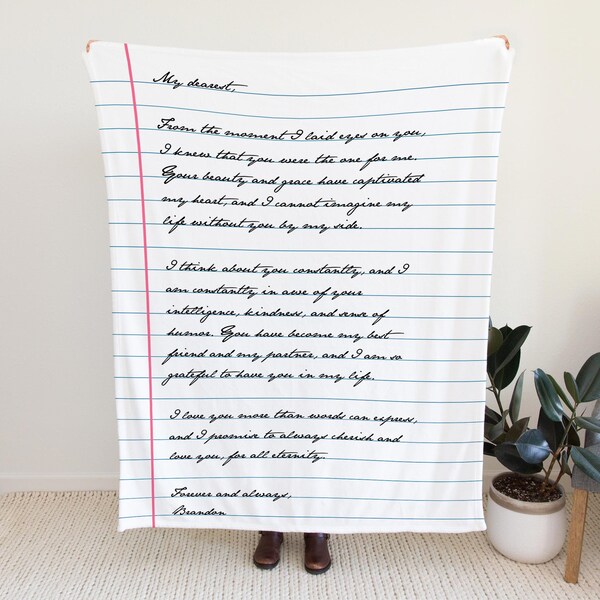 My dearest,
From the moment I laid eyes on you,
I knew that you were the one for me.
Your beauty and grace have captivated
my heart, and I cannot imagine my
life without you by my side.
I think about you constantly, and I
am constantly in awe of your
intelligence, kindness, and sense of
humor. You have become my best
friend and my partner, and I am so
grateful to have you in my life.
I love you more than words can express,
and I promise to always cherish and
love you, for all eternity.
Forever and always,
Brandon